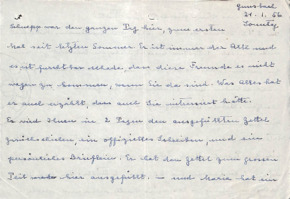 Gmunden
21.1.56
Sonntag
Schnapp war den ganzen Tag hier, zum ersten
Mal seit letztem Sommer. Es ist immer der Alte und
es ist furchtbar schade, dass diese Freunde es nicht
wagen zu kommen, wenn Sie da sind. Was Alles hat
er auch erzählt, das auch Sie interessiert hätte.
Es wird Ihnen in 2 Tagen den ausgefüllten Zettel
zurückschicken, ein offizielles Schreiben, und ein
persönliches Brieflein. Er hat den Zettel zum grossen
Teil hier ausgefüllt. und Maria hat ein